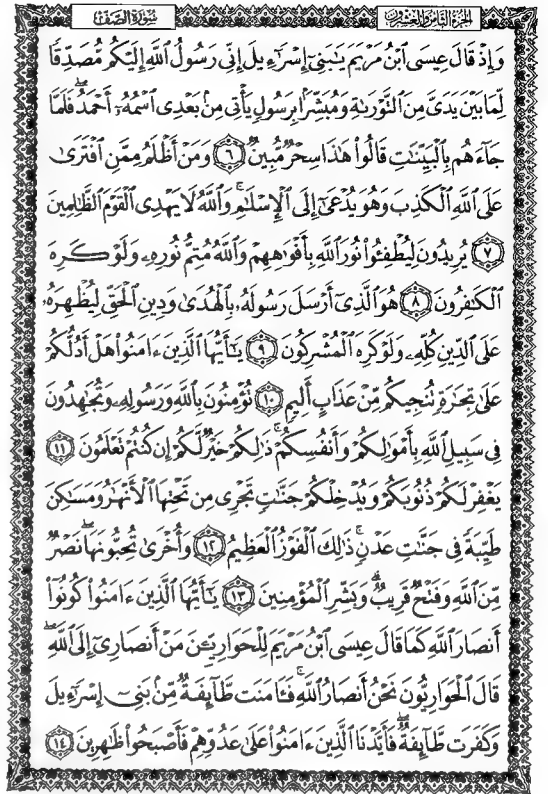 سُورَةُ الصَّفّ
الجزء الثامن والعشرون
وَإِذْ قَالَ عِيسَى ٱبْنُ مَرْيَمَ يَٰبَنِىٓ إِسْرَٰٓءِيلَ إِنِّى رَسُولُ ٱللَّهِ إِلَيْكُم مُّصَدِّقًا
لِّمَا بَيْنَ يَدَىَّ مِنَ ٱلتَّوْرَىٰةِ وَمُبَشِّرًۢا بِرَسُولٍ يَأْتِى مِنۢ بَعْدِى ٱسْمُهُۥٓ أَحْمَدُ ۖ فَلَمَّا
جَآءَهُم بِٱلْبَيِّنَٰتِ قَالُوا۟ هَٰذَا سِحْرٌ مُّبِينٌ ٦ وَمَنْ أَظْلَمُ مِمَّنِ ٱفْتَرَىٰ
عَلَى ٱللَّهِ ٱلْكَذِبَ وَهُوَ يُدْعَىٰٓ إِلَى ٱلْإِسْلَٰمِ ۚ وَٱللَّهُ لَا يَهْدِى ٱلْقَوْمَ ٱلظَّٰلِمِينَ
٧ يُرِيدُونَ لِيُطْفِـُٔوا۟ نُورَ ٱللَّهِ بِأَفْوَٰهِهِمْ وَٱللَّهُ مُتِمُّ نُورِهِۦ وَلَوْ كَرِهَ
ٱلْكَٰفِرُونَ ٨ هُوَ ٱلَّذِىٓ أَرْسَلَ رَسُولَهُۥ بِٱلْهُدَىٰ وَدِينِ ٱلْحَقِّ لِيُظْهِرَهُۥ
عَلَى ٱلدِّينِ كُلِّهِۦ وَلَوْ كَرِهَ ٱلْمُشْرِكُونَ ٩ يَٰٓأَيُّهَا ٱلَّذِينَ ءَامَنُوا۟ هَلْ أَدُلُّكُمْ
عَلَىٰ تِجَٰرَةٍ تُنجِيكُم مِّنْ عَذَابٍ أَلِيمٍ ١٠ تُؤْمِنُونَ بِٱللَّهِ وَرَسُولِهِۦ وَتُجَٰهِدُونَ
فِى سَبِيلِ ٱللَّهِ بِأَمْوَٰلِكُمْ وَأَنفُسِكُمْ ۚ ذَٰلِكُمْ خَيْرٌ لَّكُمْ إِن كُنتُمْ تَعْلَمُونَ ١١
يَغْفِرْ لَكُمْ ذُنُوبَكُمْ وَيُدْخِلْكُمْ جَنَّٰتٍ تَجْرِى مِن تَحْتِهَا ٱلْأَنْهَٰرُ وَمَسَٰكِنَ
طَيِّبَةً فِى جَنَّٰتِ عَدْنٍ ۚ ذَٰلِكَ ٱلْفَوْزُ ٱلْعَظِيمُ ١٢ وَأُخْرَىٰ تُحِبُّونَهَا ۖ نَصْرٌ
مِّنَ ٱللَّهِ وَفَتْحٌ قَرِيبٌ ۗ وَبَشِّرِ ٱلْمُؤْمِنِينَ ١٣ يَٰٓأَيُّهَا ٱلَّذِينَ ءَامَنُوا۟ كُونُوٓا۟
أَنصَارَ ٱللَّهِ كَمَا قَالَ عِيسَى ٱبْنُ مَرْيَمَ لِلْحَوَارِيِّـۧنَ مَنْ أَنصَارِىٓ إِلَى ٱللَّهِ ۖ
قَالَ ٱلْحَوَارِيُّونَ نَحْنُ أَنصَارُ ٱللَّهِ ۖ فَـَٔامَنَت طَّآئِفَةٌ مِّنۢ بَنِىٓ إِسْرَٰٓءِيلَ
وَكَفَرَت طَّآئِفَةٌ ۖ فَأَيَّدْنَا ٱلَّذِينَ ءَامَنُوا۟ عَلَىٰ عَدُوِّهِمْ فَأَصْبَحُوا۟ ظَٰهِرِينَ ١٤